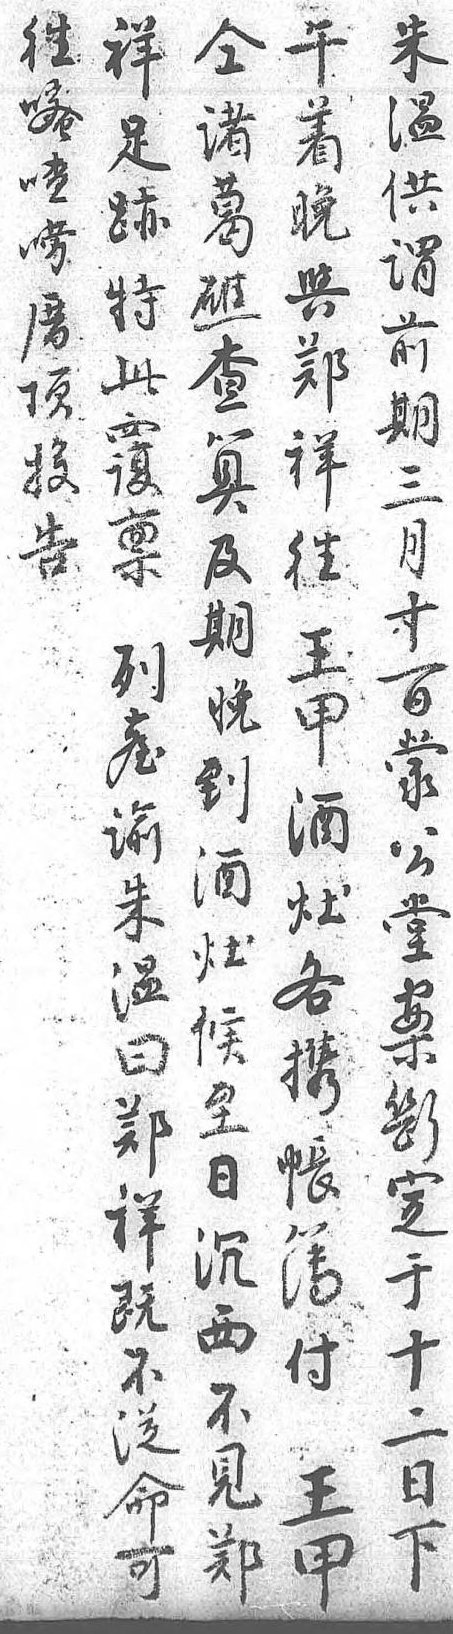 朱温供謂前期三月十一日蒙公堂案斷定于十二日下
午着晚與鄭祥往王甲酒灶各携帳簿付王甲
仝諸葛礁查算及期晚到酒灶候至日沉西不見鄭
祥足跡特此覆稟列臺諭朱温曰鄭祥既不從命可
往嘧喳嘮厝項投告